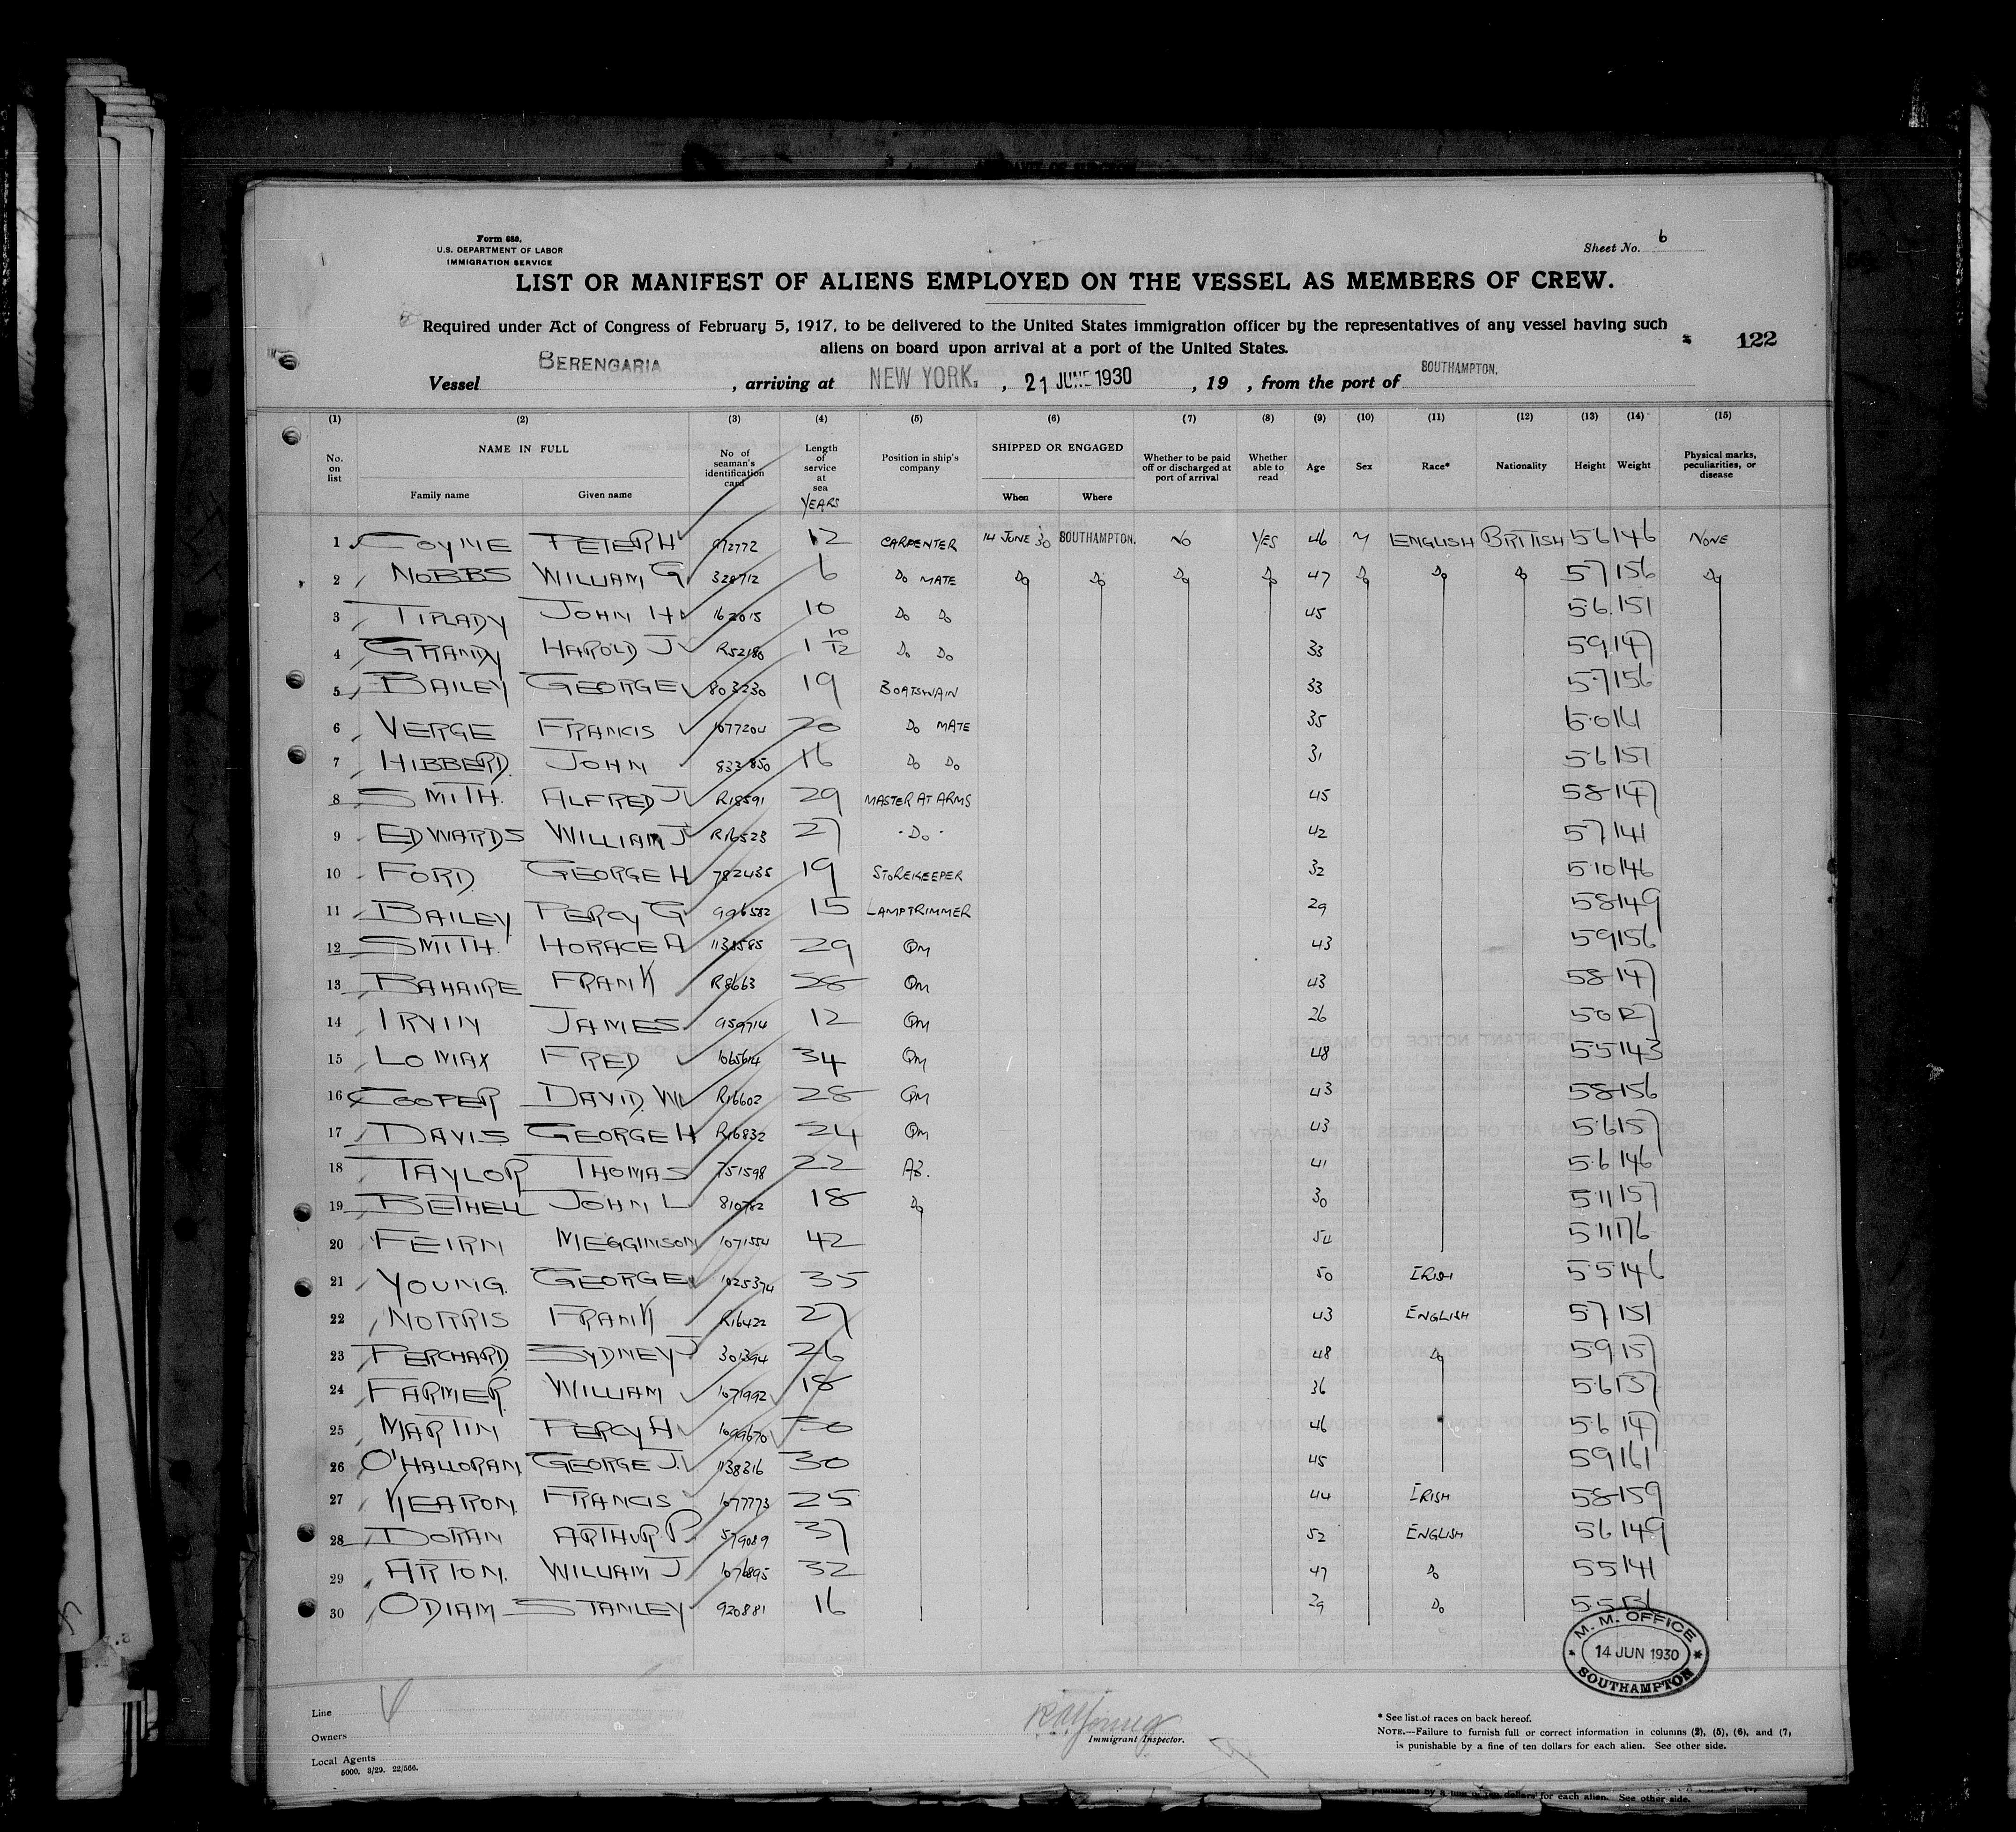 Form 680.
U.S. DEPARTMENT OF LABOR
IMMIGRATION SERVICE
Sheet No. 6
LIST OR MANIFEST OF ALIENS EMPLOYED ON THE VESSEL AS MEMBERS OF CREW.
Required under Act of Congress of February 5, 1917, to be delivered to the United States immigration officer by the representatives of any vessel having such
aliens on board upon arrival at a port of the United States.
122
Vessel BERENGARIA, arriving at NEW YORK., 21 JUNE 1930, 19 , from the port of SOUTHAMPTON.
(1) (2) (3) (4) (5) (6) (7) (8) (9) (10) (11) (12) (13) (14) (15)
No. on list NAME IN FULL Family name Given name No of seaman's identification card Length of service at sea YEARS Position in ship's company SHIPPED OR ENGAGED When Where Whether to be paid off or discharged at port of arrival Whether able to read Age Sex Race* Nationality Height Weight Physical marks, peculiarities, or disease
1 COYNE PETER H 972772 12 CARPENTER 14 JUNE 30 SOUTHAMPTON. NO YES 46 M ENGLISH BRITISH 5 6 146 NONE
2 NOBBS WILLIAM G 328712 6 Do MATE Do Do Do Do 47 Do Do Do 5 7 156 Do
3 TIPLADY JOHN H 162015 10 Do Do 45 5.6. 151
4 GRANDY HAROLD J R52180 1 10/12 Do Do 33 5 9 147
5 BAILEY GEORGE 803230 19 BOATSWAIN 33 5.7 156
6 VERGE FRANCIS 1077204 20 Do MATE 35 6.0
7 HIBBERD. JOHN 833850 16 Do Do 31 5 6 157
8 SMITH. ALFRED J R18591 29 MASTER AT ARMS 45 5 8 147
9 EDWARDS WILLIAM J R16523 27 Do 42 5 7 141
10 FORD GEORGE H 782435 19 STOREKEEPER 32 5 10 146
11 BAILEY. PERCY G 996582 15 LAMPTRIMMER 29 5 8 149
12 SMITH. HORACE A 1138585 29 QM 43 5 9 156
13 BAHAIRE FRANK R8663 28 QM 43 5 8 147
14 IRVIN JAMES 959714 12 QM 26 5 0 127
15 LOMAX FRED 1065614 34 QM 48 5 5 143
16 COOPER DAVID. W R16602 28 QM 43 5 8 156
17 DAVIS GEORGE H R16832 24 QM 43 5.6 157
18 TAYLOR THOMAS 751598 22 AB. 41 5.6 146
19 BETHELL JOHN L 810782 18 Do 30 5 11 157
20 FEIRN MEGGINSON 1071554 42 54 5 11 176
21 YOUNG. GEORGE 1025374 35 50 IRISH 5 5 146
22 NORRIS FRANK R16422 27 43 ENGLISH 5 7 151
23 PERCHARD. SYDNEY J 301394 26 48 Do 5 9 157
24 FARMER. WILLIAM 1071992 18 36 5.6 137
25 MARTIN PERCY A 1099670 30 46 5.6 147
26 O'HALLORAN GEORGE J. 1138316 30 45 5 9 161
27 KEARON. FRANCIS 1077773 25 44 IRISH 5 8 159
28 DORAN ARTHUR P. 579089 37 52 ENGLISH 5 6 149
29 ARTON. WILLIAM J 1076895 32 47 Do 5 5 141
30 ODIAM STANLEY 920881 16 29 Do 5.5
M. M. OFFICE
14 JUN 1930
SOUTHAMPTON
Line
Owners
Local Agents
5000. 3/29. 22/566.
R M Young
Immigrant Inspector.
* See list of races on back hereof.
NOTE.—Failure to furnish full or correct information in columns (2), (5), (6), and (7),
is punishable by a fine of ten dollars for each alien. See other side.
for each alien. See other side.